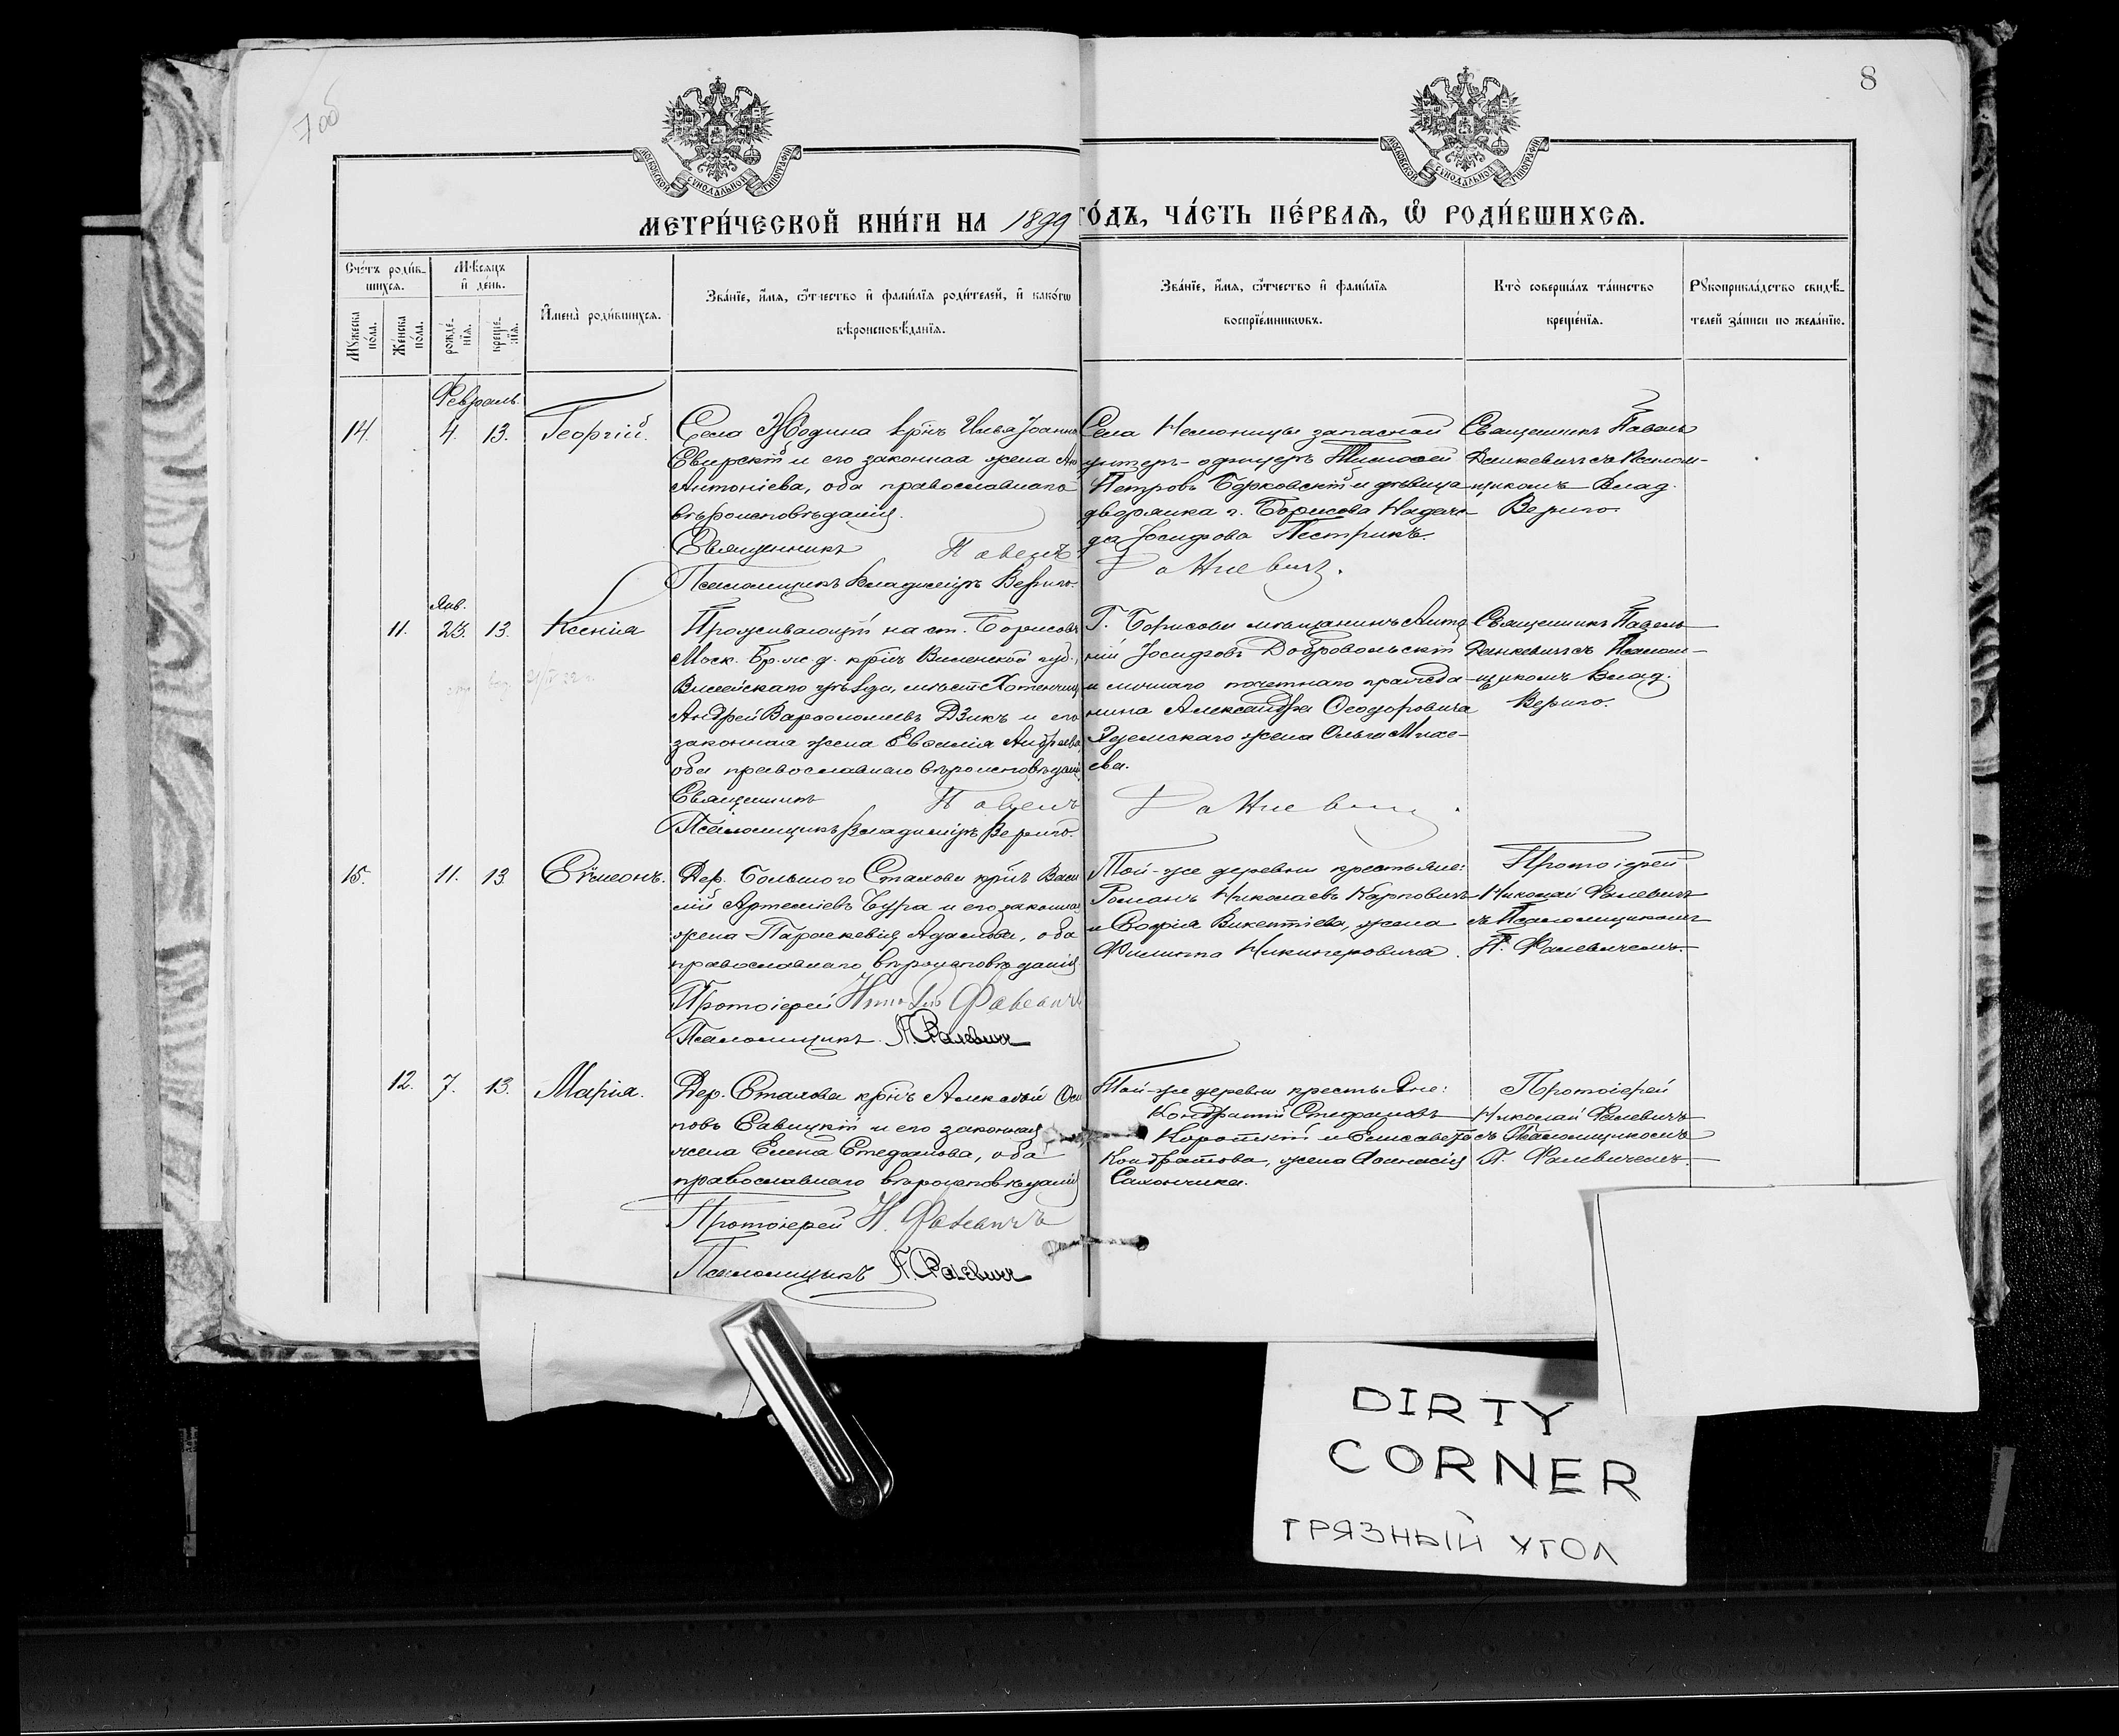 7 об
8
МОСКОВСКОЙ СѴНОДАЛЬНОЙ ТИПОГРАФІИ
МОСКОВСКОЙ СѴНОДАЛЬНОЙ ТИПОГРАФІИ
МЕТРИ́ЧЕСКОЙ КНИ́ГИ НА 1899 ГО́ДЪ, ЧА́СТЬ ПЕ́РВАѦ, Ѽ РОДИ́ВШИХСѦ.
Сче́тъ роди́в-
шихсѧ.
Мꙋжеска
по́ла.
Же́нска
по́ла.
Мѣ́сѧцъ
и҆ де́нь.
рожде́-
нїѧ.
креще́-
нїѧ.
И҆мена̀ роди́вшихсѧ.
Зва́нїе, и҆́мѧ, ѻ҆́тчество и҆ фами́лїѧ роди́телей, и҆ како́гѡ
вѣроисповѣ́данїѧ.
Зва́нїе, и҆́мѧ, ѻ҆́тчество и҆ фами́лїѧ
воспрїе́мникѡвъ.
Кто̀ соверша́лъ та́инство
креще́нїѧ.
Рꙋкоприкла́дство свидѣ́-
телей за́писи по жела́нїю.
Февраль.
14. 4. 13. Георгій.
Села Жодина крнъ Илья Іоанновъ
Свирскій и его законная жена
Антоніева, оба православнаго
вѣроисповѣданія.
Священникъ Павелъ
Псаломщикъ Владиміръ Вериго.
Села Немоницы запасной
унтеръ-офицеръ Тимоѳей
Петровъ Борковскій и дѣвица
дворянка г. Борисова Надеж-
да Іосифова Пестрикъ.
Данкевичъ.
Священникъ Павелъ
Данкевичъ съ Псалом-
щикомъ Влад.
Вериго.
Янв.
11. 23. 13. Ксенія
Проживающій на ст. Борисовъ
Моск. Бр. ж. д. крнъ Виленской губ.,
Вилейскаго уѣзда, мѣст. Хотенчицъ
Андрей Варѳоломеевъ Дзикъ и его
законная жена Евѳимія Андреева,
оба православнаго вѣроисповѣданія
Священникъ Павелъ
Псаломщикъ Владиміръ Вериго.
Г. Борисова мѣщанинъ Анто
ній Іосифовъ Добровольскій
и личнаго почетнаго гражда-
нина Александра Ѳеодоровича
жена Ольга
ева.
Данкевичъ.
Священникъ Павелъ
Данкевичъ съ Псалом-
щикомъ Влад.
Вериго.
15. 11. 13 Сѵмеонъ.
Дер. Большого Стахова крнъ Васи
лій Артеміевъ Бура и его законная
жена Параскевія Адамова, оба
православнаго вѣроисповѣданія
Протоіерей Николай Фалевичъ
Псаломщикъ. П. Фалевичъ
Той-же деревни крестьяне:
Романъ Николаевъ Карповичъ
и Софія Викентіева, жена
Филиппа Никиперовича.
Протоіерей
Николай Фалевичъ
съ Псаломщикомъ
П. Фалевичемъ.
12. 7. 13. Марія.
Дер. Стахова крнъ Алексѣй Оси
повъ Савицкій и его законная
жена Елена Стефанова, оба
православнаго вѣроисповѣданія
Протоіерей Н. Фалевичъ
Псаломщикъ П. Фалевичъ
Той-же деревни крестьяне:
Кондратій Стефановъ
Короткій и Елисавета
Кондратова, жена Аѳанасія
Сахончика.
Протоіерей
Николай Фалевичъ
съ Псаломщикомъ
П. Фалевичемъ.
DIRTY
CORNER
ГРЯЗНЫЙ УГОЛ